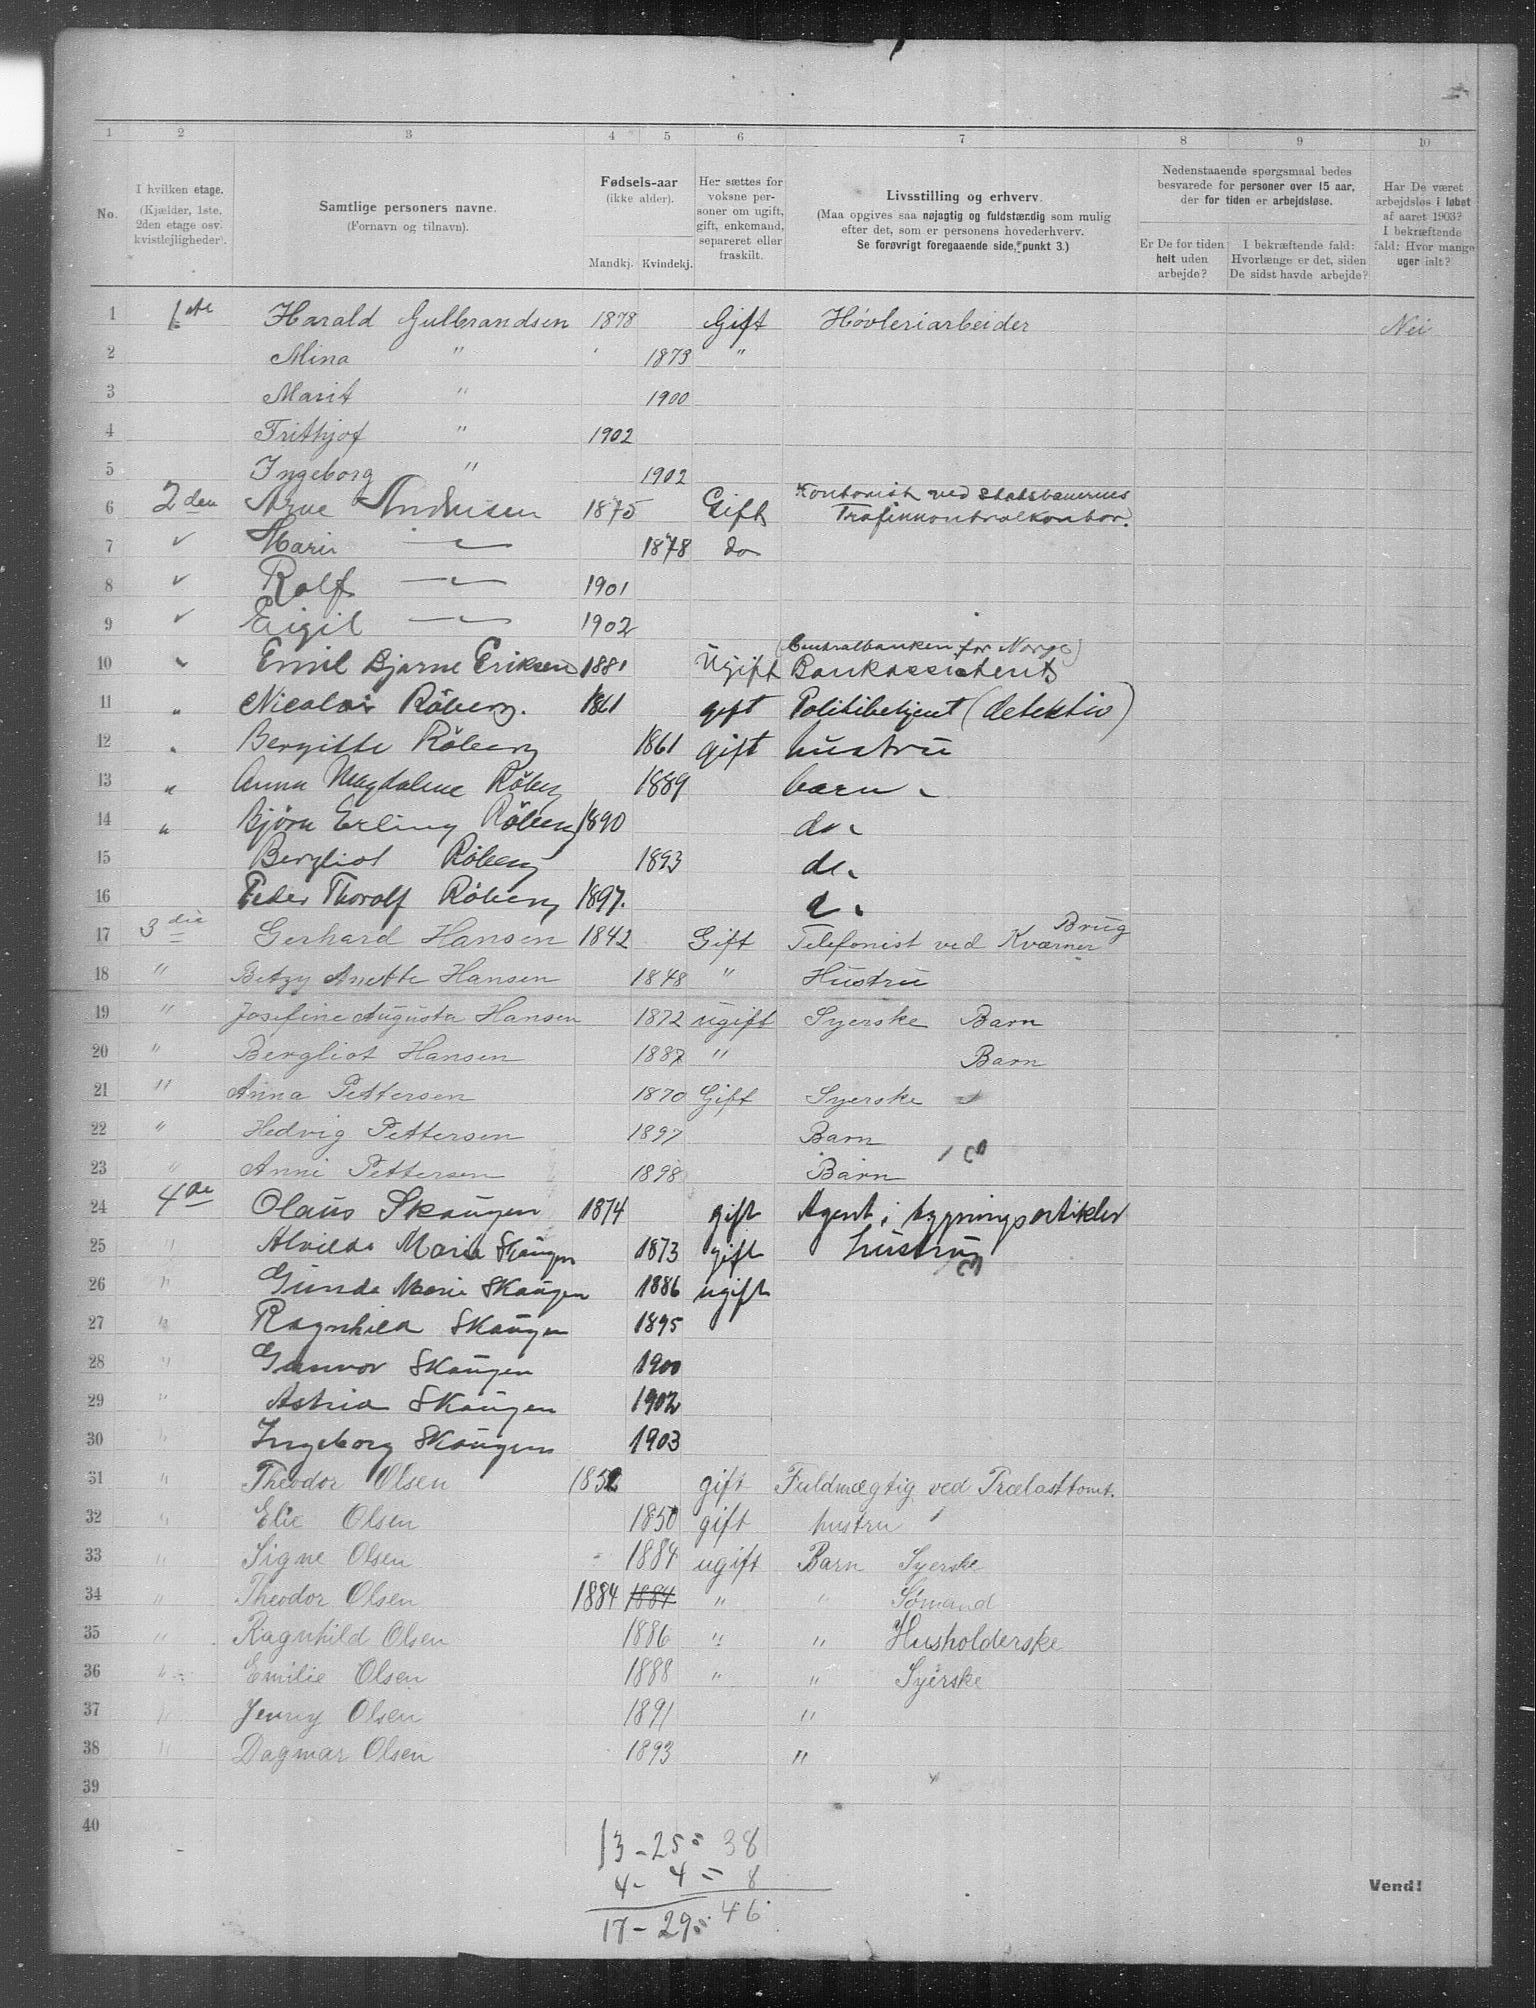 1 2 3 4 5 6 7 8 9 10
No.
I hvilken etage.
(Kjælder, 1ste,
2den etage osv.
kvistlejligheder).
Samtlige personers navne.
(Fornavn og tilnavn).
Fødsels-aar
(ikke alder).
Mandkj. Kvindekj.
Her sættes for
voksne per-
soner om ugift,
gift, enkemand,
separeret eller
fraskilt.
Livsstilling og erhverv.
(Maa opgives saa nøjagtig og fuldstændig som mulig
efter det, som er personens hovederhverv.
Se forøvrigt foregaaende side, punkt 3.)
Nedenstaaende spørgsmaal bedes
besvarede for personer over 15 aar,
der for tiden er arbejdsløse.
Er De for tiden
helt uden
arbejde?
I bekræftende fald:
Hvorlænge er det, siden
De sidst havde arbejde?
Har De været
arbejdsløs i løbet
af aaret 1903?
I bekræftende
fald: Hvor mange
uger ialt?
1 1ste Harald Gulbrandsen 1878 Gift Høvleriarbeider Nei
2 Mina " 1873 "
3 Marit " 1900
4 Frithjof " 1902
5 Ingeborg " 1902
6 2den Arne Andersen 1875 Gift Kontorist ved Statsbanernes
Trafikkontrolkontor.
7 Marie 1878 do
8 Rolf 1901
9 Eigil 1902
(Centralbanken for Norge)
10 " Emil Bjarne Eriksen 1881 Ugift Bankassistent
11 " Nicolai Røberg. 1861 gift Politibetjent (detektiv)
12 " Bergitte Røberg 1861 gift hustru
13 " Anna Magdalene Røberg 1889 barn
14 " Bjørn Erling Røberg 1890 do.
15 Bergliot Røberg 1893 do.
16 Peder Thorolf Røberg 1897. d.
17 3die Gerhard Hansen 1842 Gift Telefonist ved Kværner Brug
18 " Betzy Anette Hansen 1848 " Hustru
19 " Josefine Augusta Hansen 1872 ugift Syerske Barn
20 " Bergliot Hansen 1887 " Barn
21 " Anna Pettersen 1870 Gift Syerske
22 " Hedvig Pettersen 1897 Barn
23 " Anni Pettersen 1898 Barn
24 4de Olaus Skaugen 1874 gift Agent i bygningsartikler
25 Alvilda Marie Skaugen 1873 gift hustru
26 " Gunda Marie Skaugen 1886 ugift
27 " Ragnhild Skaugen 1895
28 " Gunvor Skaugen 1900
29 " Astrid Skaugen 1902
30 " Ingeborg Skaugen 1903
31 " Theodor Olsen 1852 gift Fuldmægtig ved Trælasttomt.
32 " Elie Olsen 1850 gift hustru
33 " Signe Olsen 1884 ugift Barn Syerske
34 " Theodor Olsen 1884 1884 " " Sømand
35 " Ragnhild Olsen 1886 " " Husholderske
36 " Emilie Olsen 1888 " " Syerske
37 " Jenny Olsen 1891 "
38 " Dagmar Olsen 1893 "
39
40
13 - 25 = 38
4 - 4 = 8
17 - 29 = 46
Vend!